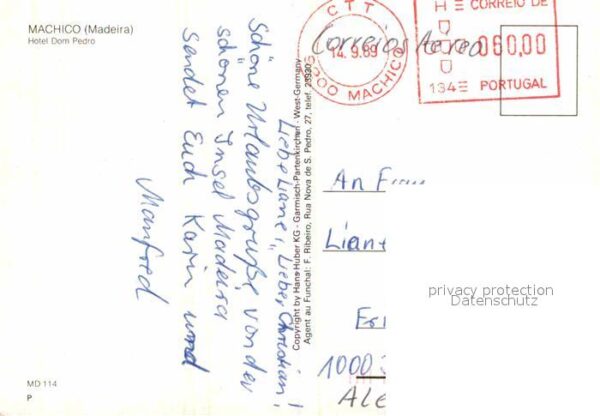 MACHICO (Madeira)
Hotel Dom Pedro
Liebe Liane, Lieber Christian!
Schöne Urlaubsgrüße von der
schönen Insel Madeira
sendet Euch Karin und
Manfred
Copyright by Hans Huber KG - Garmisch-Partenkirchen - West-Germany
Agent au Funchal: F. Ribeiro, Rua Nova de S. Pedro, 27, telef.
CTT
14.9.89
MACHICO
Correios Aereo
CORREIO DE
060,00
134
PORTUGAL
An
Lian
1000
privacy protection
Datenschutz
MD 114
P